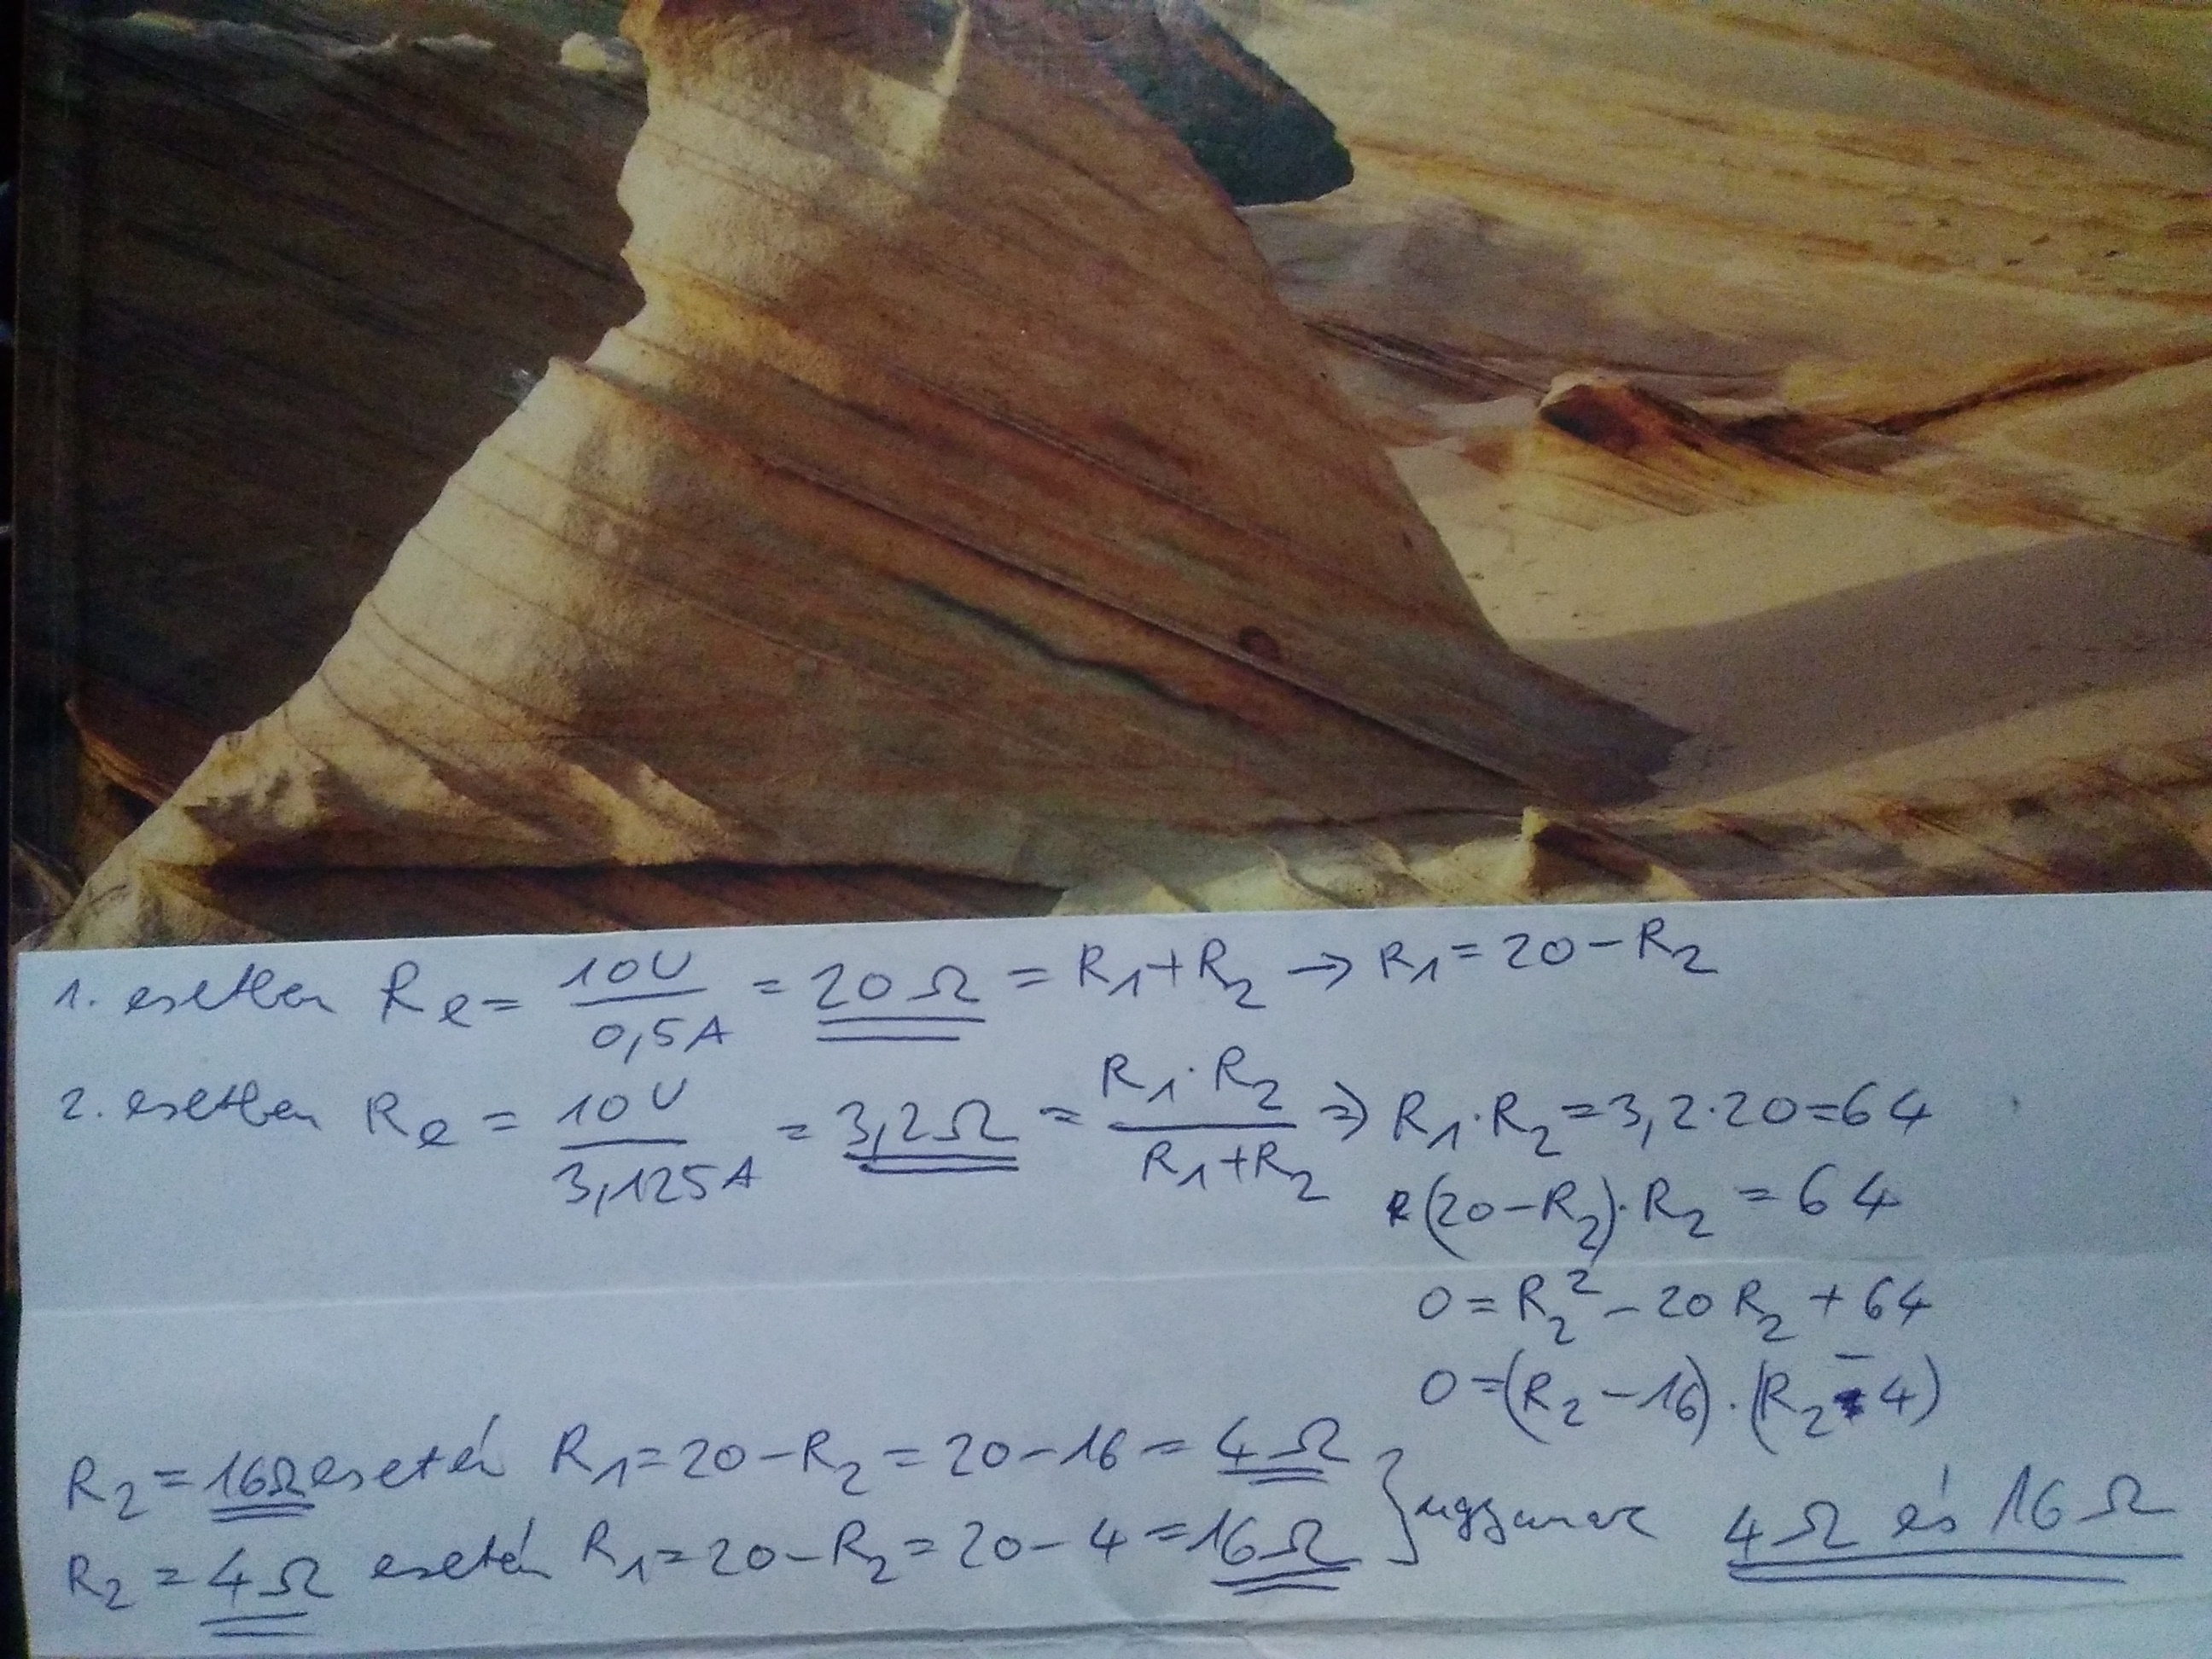 1. esetben Re = 10V / 0,5A = 20 Ω = R1+R2 → R1 = 20 - R2
2. esetben Re = 10V / 3,125A = 3,2 Ω = R1·R2 / R1+R2 ⇒ R1·R2 = 3,2·20 = 64
(20-R2)·R2 = 64
0 = R2² - 20 R2 + 64
0 = (R2 - 16)·(R2 - 4)
R2 = 16Ω esetén R1 = 20 - R2 = 20 - 16 = 4 Ω
R2 = 4 Ω esetén R1 = 20 - R2 = 20 - 4 = 16 Ω } ugyanaz 4 Ω és 16 Ω